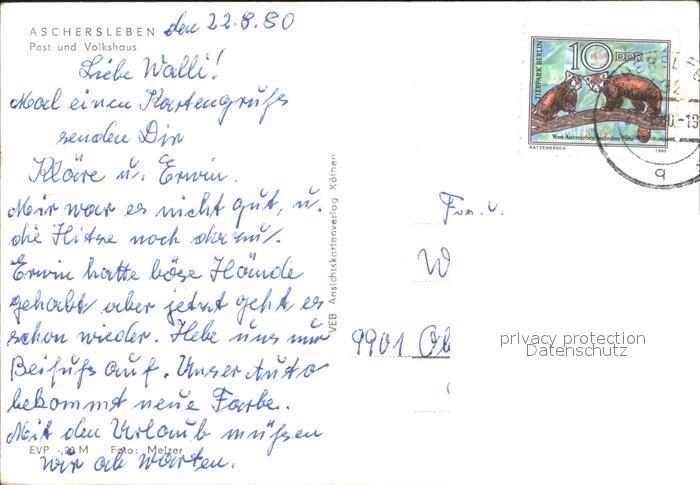 ASCHERSLEBEN den 22.8.80
Post und Volkshaus
Liebe Walli!
Mal einen Kartengruß
senden Dir
Kläre u. Erwin.
Mir war es nicht gut, u.
die Hitze noch dazu.
Erwin hatte böse Hände
gehabt aber jetzt geht es
schon wieder. Hebe uns nur
Beifuß auf. Unser Auto
bekommt neue Farbe.
Mit den Urlaub müssen
wir ab warten.
EVP -,20 M Foto: Melzer
VEB Ansichtskartenverlag Köthen
TIERPARK BERLIN
10 DDR
Vom Aussterben bedrohte Tiere
KATZENBÄREN 1980
W
9901
privacy protection
Datenschutz